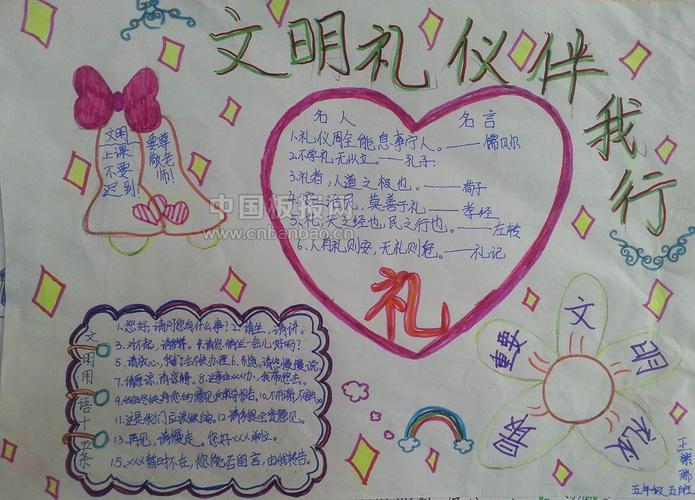 文明礼仪伴我行
名人 名言
1.礼仪周全能息事宁人。——儒贝尔
2.不学礼,无以立。——孔子
3.礼者,人道之极也。——荀子
治民,莫善于礼——孝经
5.礼,天之经也,民之行也。——左转
6.人有礼则安,无礼则危。——礼记
礼
文明
上课
不要
迟到
要尊
敬老师!
中国板报网
www.cnbanbao.cn
文明用语十五条
1.您好,请问您有什么事?2.请坐,请讲。
3.对不起,请稍等。4.请您稍坐一会儿好吗?
5.请放心,我们会尽快办理。6.别急,请您慢慢说
7.请原谅,请谅解。8.这事由xxx办,我带您去。
10.不用谢,
11.这是我们应该做的。12.请多提宝贵意见。
13.再见,请慢走。
15.xxx暂时不在,您能否留言,由我转告。
文
明
礼
仪
重要
五年级五班